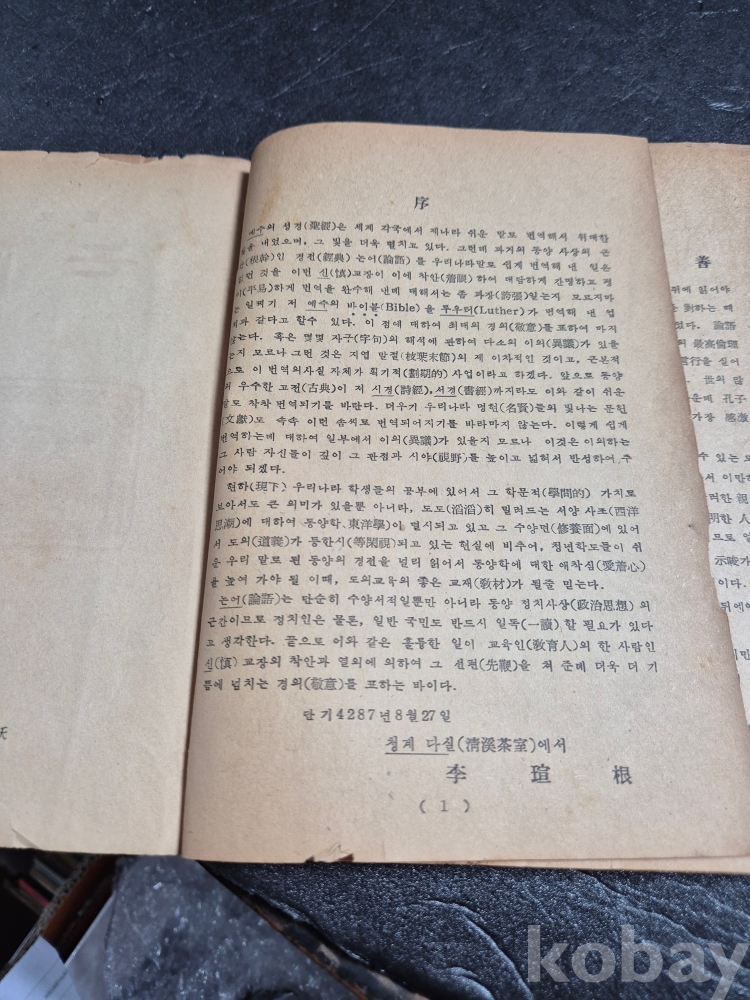 序
예수의 성경(聖經)은 세계 각국에서 제나라 쉬운 말로 번역해서 위대한
을 내었으며, 그 빛을 더욱 떨치고 있다. 그런데 과거의 동양 사상의 근
(根幹)인 경전(經典) 논어(論語)를 우리나라말로 쉽게 번역해 낸 일은
던 것을 이번 신(愼)교장이 이에 착안(着眼)하여 대담하게 간명하고 평
(平易)하게 번역을 완수해 낸데 대해서는 좀 과장(誇張)일는지 모르지마
는 일찍기 저 예수의 바이블(Bible)을 루우터(Luther)가 번역해 낸 업
과 같다고 할수 있다. 이 점에 대하여 최대의 경의(敬意)를 표하여 마지
않는다. 혹은 몇몇 자구(字句)의 해석에 관하여 다소의 이의(異議)가 있을
는지 모르나 그런 것은 지엽 말절(枝葉末節)의 제 이차적인 것이고, 근본적
으로 이 번역의사실 자체가 획기적(劃期的)사업이라고 하겠다. 앞으로 동양
의 우수한 고전(古典)이 저 시경(詩經), 서경(書經)까지라도 이와 같이 쉬운
말로 착착 번역되기를 바란다. 더우기 우리나라 명현(名賢)들의 빛나는 문헌
(文獻)도 속속 이런 솜씨로 번역되어지기를 바라마지 않는다. 이렇게 쉽게
번역하는데 대하여 일부에서 이의(異議)가 있을지 모르나 이것은 이의하는
그 사람 자신들이 깊이 그 관점과 시야(視野)를 높이고 넓혀서 반성하여 주
어야 되겠다.
현하(現下) 우리나라 학생들의 공부에 있어서 그 학문적(學問的) 가치로
보아서도 큰 의미가 있을뿐 아니라, 도도(滔滔)히 밀려드는 서양 사조(西洋
思潮)에 대하여 동양학(東洋學)이 멸시되고 있고 그 수양면(修養面)에 있어
서 도의(道義)가 등한시(等閑視)되고 있는 현실에 비추어, 청년학도들이 쉬
운 우리 말로 된 동양의 경전을 널리 읽어서 동양학에 대한 애착심(愛着心)
을 높여 가야 될 이때, 도의교육의 좋은 교재(敎材)가 될줄 믿는다.
논어(論語)는 단순히 수양서적일뿐만 아니라 동양 정치사상(政治思想)의
근간이므로 정치인은 물론, 일반 국민도 반드시 일독(一讀)할 필요가 있다
고 생각한다. 끝으로 이와 같은 훌륭한 일이 교육인(敎育人)의 한 사람인
신(愼)교장의 착안과 열의에 의하여 그 선편(先鞭)을 쳐 준데 더욱 더 기
쁨에 넘치는 경의(敬意)를 표하는 바이다.
단기4287년8월27일
청계 다실(淸溪茶室)에서
李 瑄 根
( 1 )
善
뒤에 읽어야
대하는 때
論語
의 最高倫理
言行을 실어
世의 많
孔子
가장 感激
수 있는 모
서 이만하
한 사
므로 알
示唆가
이다.
뒤에
kobay